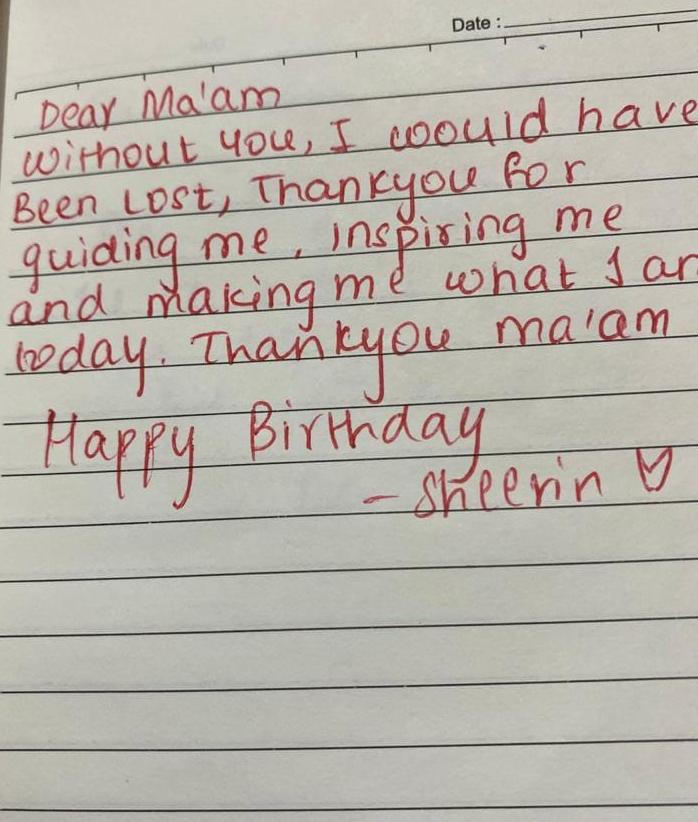 Date :
Dear Ma'am
without you, I would have
Been Lost, Thankyou for
guiding me, inspiring me
and making me what I am
today. Thankyou ma'am
Happy Birthday
- Sheerin ♡